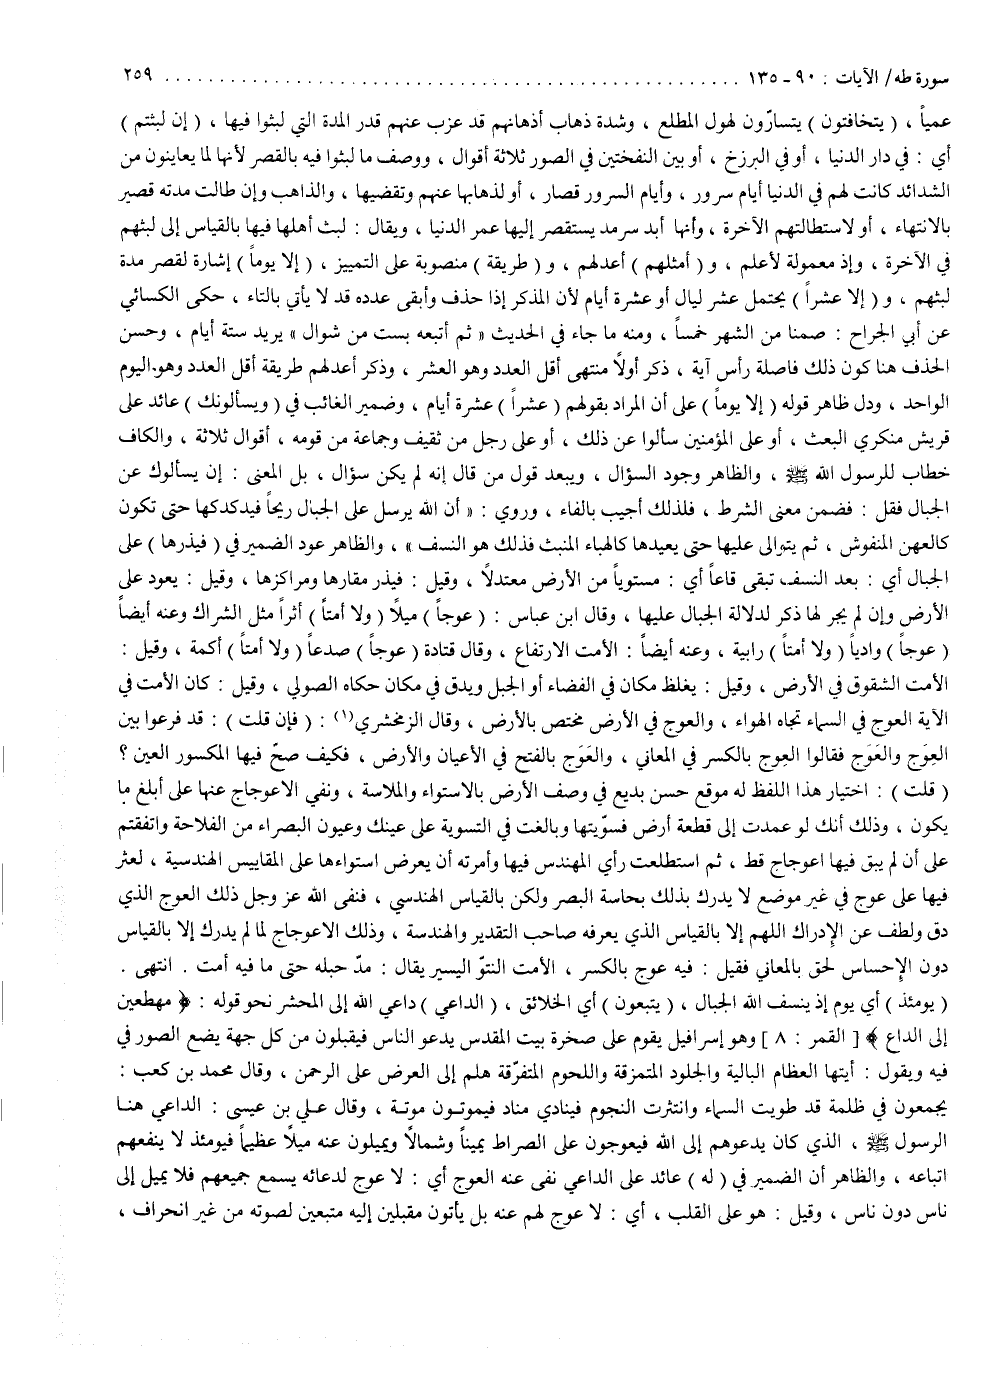 سورة طه/ الآيات : ٩٠ - ١٣٥ ................................................................ ٢٥٩
عمياً ، ( يتخافتون ) يتسارّون لهول المطلع ، وشدة ذهاب أذهانهم قد عزب عنهم قدر المدة التي لبثوا فيها ، ( إن لبثتم )
أي : في دار الدنيا ، أو في البرزخ ، أو بين النفختين في الصور ثلاثة أقوال ، ووصف ما لبثوا فيه بالقصر لأنها لما يعاينون من
الشدائد كانت لهم في الدنيا أيام سرور ، وأيام السرور قصار ، أو لذهابها عنهم وتقضيها ، والذاهب وإن طالت مدته قصير
بالانتهاء ، أو لاستطالتهم الآخرة ، وأنها أبد سرمد يستقصر إليها عمر الدنيا ، ويقال : لبث أهلها فيها بالقياس إلى لبثهم
في الآخرة ، وإذ معمولة لأعلم ، و( أمثلهم ) أعدلهم ، و( طريقة ) منصوبة على التمييز ، ( إلا يوماً ) إشارة لقصر مدة
لبثهم ، و( إلا عشراً ) يحتمل عشر ليال أو عشرة أيام لأن المذكر إذا حذف وأبقى عدده قد لا يأتي بالتاء ، حكى الكسائي
عن أبي الجراح : صمنا من الشهر خمساً ، ومنه ما جاء في الحديث « ثم أتبعه بست من شوال » يريد ستة أيام ، وحسن
الحذف هنا كون ذلك فاصلة رأس آية ، ذكر أولاً منتهى أقل العدد وهو العشر ، وذكر أعدلهم طريقة أقل العدد وهو اليوم
الواحد ، ودل ظاهر قوله ( إلا يوماً ) على أن المراد بقولهم ( عشراً ) عشرة أيام ، وضمير الغائب في ( ويسألونك ) عائد على
قريش منكري البعث ، أو على المؤمنين سألوا عن ذلك ، أو على رجل من ثقيف وجماعة من قومه ، أقوال ثلاثة ، والكاف
خطاب للرسول الله ﷺ ، والظاهر وجود السؤال ، ويبعد قول من قال إنه لم يكن سؤال ، بل المعنى : إن يسألوك عن
الجبال فقل : فضمن معنى الشرط ، فلذلك أجيب بالفاء ، وروي : « أن الله يرسل على الجبال ريحاً فيدكدكها حتى تكون
كالعهن المنفوش ، ثم يتوالى عليها حتى يعيدها كالهباء المنبث فذلك هو النسف » ، والظاهر عود الضمير في ( فيذرها ) على
الجبال أي : بعد النسف تبقى قاعاً أي : مستوياً من الأرض معتدلاً ، وقيل : فيذر مقارها ومراكزها ، وقيل : يعود على
الأرض وإن لم يجر لها ذكر لدلالة الجبال عليها ، وقال ابن عباس : ( عوجاً ) ميلاً ( ولا أمتاً ) أثراً مثل الشراك وعنه أيضاً
( عوجاً ) وادياً ( ولا أمتاً ) رابية ، وعنه أيضاً : الأمت الارتفاع ، وقال قتادة ( عوجاً ) صدعاً ( ولا أمتاً ) أكمة ، وقيل :
الأمت الشقوق في الأرض ، وقيل : يغلظ مكان في الفضاء أو الجبل ويدق في مكان حكاه الصولي ، وقيل : كان الأمت في
الآية العوج في السماء تجاه الهواء ، والعوج في الأرض مختص بالأرض ، وقال الزمخشري(١) : ( فإن قلت ) : قد فرعوا بين
العِوَج والعَوَج فقالوا العِوج بالكسر في المعاني ، والعَوَج بالفتح في الأعيان والأرض ، فكيف صحّ فيها المكسور العين ؟
( قلت ) : اختيار هذا اللفظ له موقع حسن بديع في وصف الأرض بالاستواء والملاسة ، ونفي الاعوجاج عنها على أبلغ ما
يكون ، وذلك أنك لو عمدت إلى قطعة أرض فسوّيتها وبالغت في التسوية على عينك وعيون البصراء من الفلاحة واتفقتم
على أن لم يبق فيها اعوجاج قط ، ثم استطلعت رأي المهندس فيها وأمرته أن يعرض استواءها على المقاييس الهندسية ، لعثر
فيها على عوج في غير موضع لا يدرك بذلك بحاسة البصر ولكن بالقياس الهندسي ، فنفى الله عز وجل ذلك العوج الذي
دق ولطف عن الإدراك اللهم إلا بالقياس الذي يعرفه صاحب التقدير والهندسة ، وذلك الاعوجاج لما لم يدرك إلا بالقياس
دون الإحساس لحق بالمعاني فقيل : فيه عوج بالكسر ، الأمت النتوّ اليسير يقال : مدّ حبله حتى ما فيه أمت . انتهى .
( يومئذ ) أي يوم إذ ينسف الله الجبال ، ( يتبعون ) أي الخلائق ، ( الداعي ) داعي الله إلى المحشر نحو قوله : ﴿ مهطعين
إلى الداع ﴾ [ القمر : ٨ ] وهو إسرافيل يقوم على صخرة بيت المقدس يدعو الناس فيقبلون من كل جهة يضع الصور في
فيه ويقول : أيتها العظام البالية والجلود المتمزقة واللحوم المتفرّقة هلم إلى العرض على الرحمن ، وقال محمد بن كعب :
يجمعون في ظلمة قد طويت السماء وانتثرت النجوم فينادي مناد فيموتون موتة ، وقال علي بن عيسى : الداعي هنا
الرسول ﷺ ، الذي كان يدعوهم إلى الله فيعوجون على الصراط يميناً وشمالاً ويميلون عنه ميلاً عظيماً فيومئذ لا ينفعهم
اتباعه ، والظاهر أن الضمير في ( له ) عائد على الداعي نفى عنه العوج أي : لا عوج لدعائه يسمع جميعهم فلا يميل إلى
ناس دون ناس ، وقيل : هو على القلب ، أي : لا عوج لهم عنه بل يأتون مقبلين إليه متبعين لصوته من غير انحراف ،